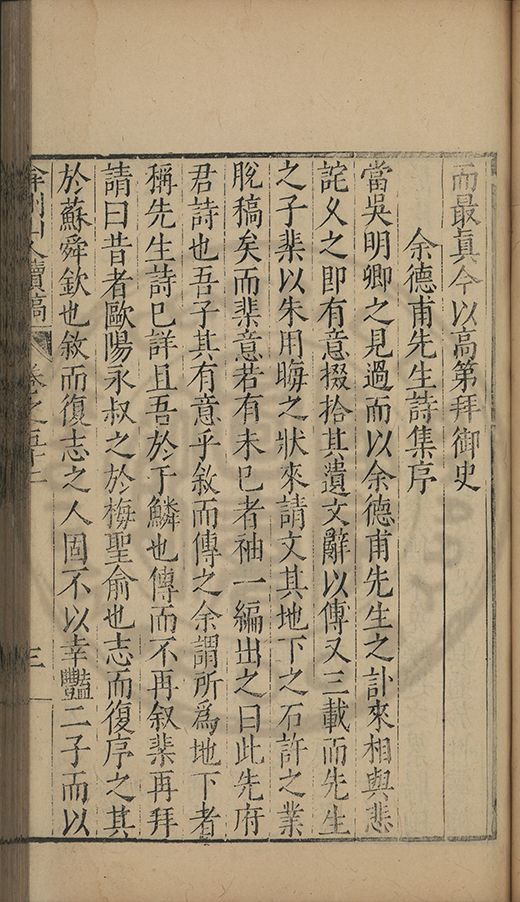 而最真今以高第拜御史
余德甫先生詩集序
當吳明卿之見過而以余德甫先生之訃來相與悲
詫久之即有意掇拾其遺文辭以傳又三載而先生
之子棐以朱用晦之狀來請文其地下之石許之業
脫稿矣而棐意若有未已者袖一編出之曰此先府
君詩也吾子其有意乎敘而傳之余謂所爲地下者
稱先生詩已詳且吾於于鱗也傳而不再叙棐再拜
請曰昔者歐陽永叔之於梅聖俞也志而復序之其
於蘇舜欽也敘而復志之人固不以幸豔二子而以
弇州山人續稿 卷之五十二 三